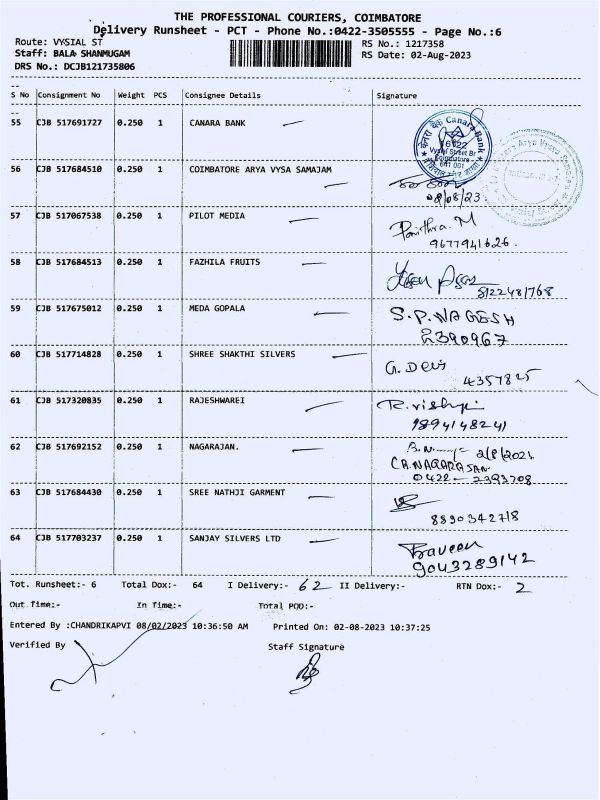 THE PROFESSIONAL COURIERS, COIMBATORE
Delivery Runsheet - PCT - Phone No.:0422-3505555 - Page No.:6
Route: VYSIAL ST
RS No.: 1217358
Staff: BALA SHANMUGAM
RS Date: 02-Aug-2023
DRS No.: DCJB121735806
S No Consignment No Weight PCS Consignee Details Signature
55 CJB 517691727 0.250 1 CANARA BANK
Canara Bank
Vysial Street Br
Coimbatore
641 001
56 CJB 517684510 0.250 1 COIMBATORE ARYA VYSA SAMAJAM
08/08/23
57 CJB 517067538 0.250 1 PILOT MEDIA
Pavithra. M
9677941626.
58 CJB 517684513 0.250 1 FAZHILA FRUITS
8122481768
59 CJB 517675012 0.250 1 MEDA GOPALA
S.P. NAGESH
2390967
60 CJB 517714828 0.250 1 SHREE SHAKTHI SILVERS
G. Devi
4357825
61 CJB 517320835 0.250 1 RAJESHWAREI
9894148241
62 CJB 517692152 0.250 1 NAGARAJAN.
CA.NAGARAJAN
0422 - 2393708
63 CJB 517684430 0.250 1 SREE NATHJI GARMENT
64 CJB 517703237 0.250 1 SANJAY SILVERS LTD
Praveen
9043289142
Tot. Runsheet:- 6 Total Dox:- 64 I Delivery:- 62 II Delivery:- RTN Dox:- 2
Out Time:- In Time:- Total POD:-
Entered By :CHANDRIKAPVI 08/02/2023 10:36:50 AM Printed On: 02-08-2023 10:37:25
Verified By Staff Signature